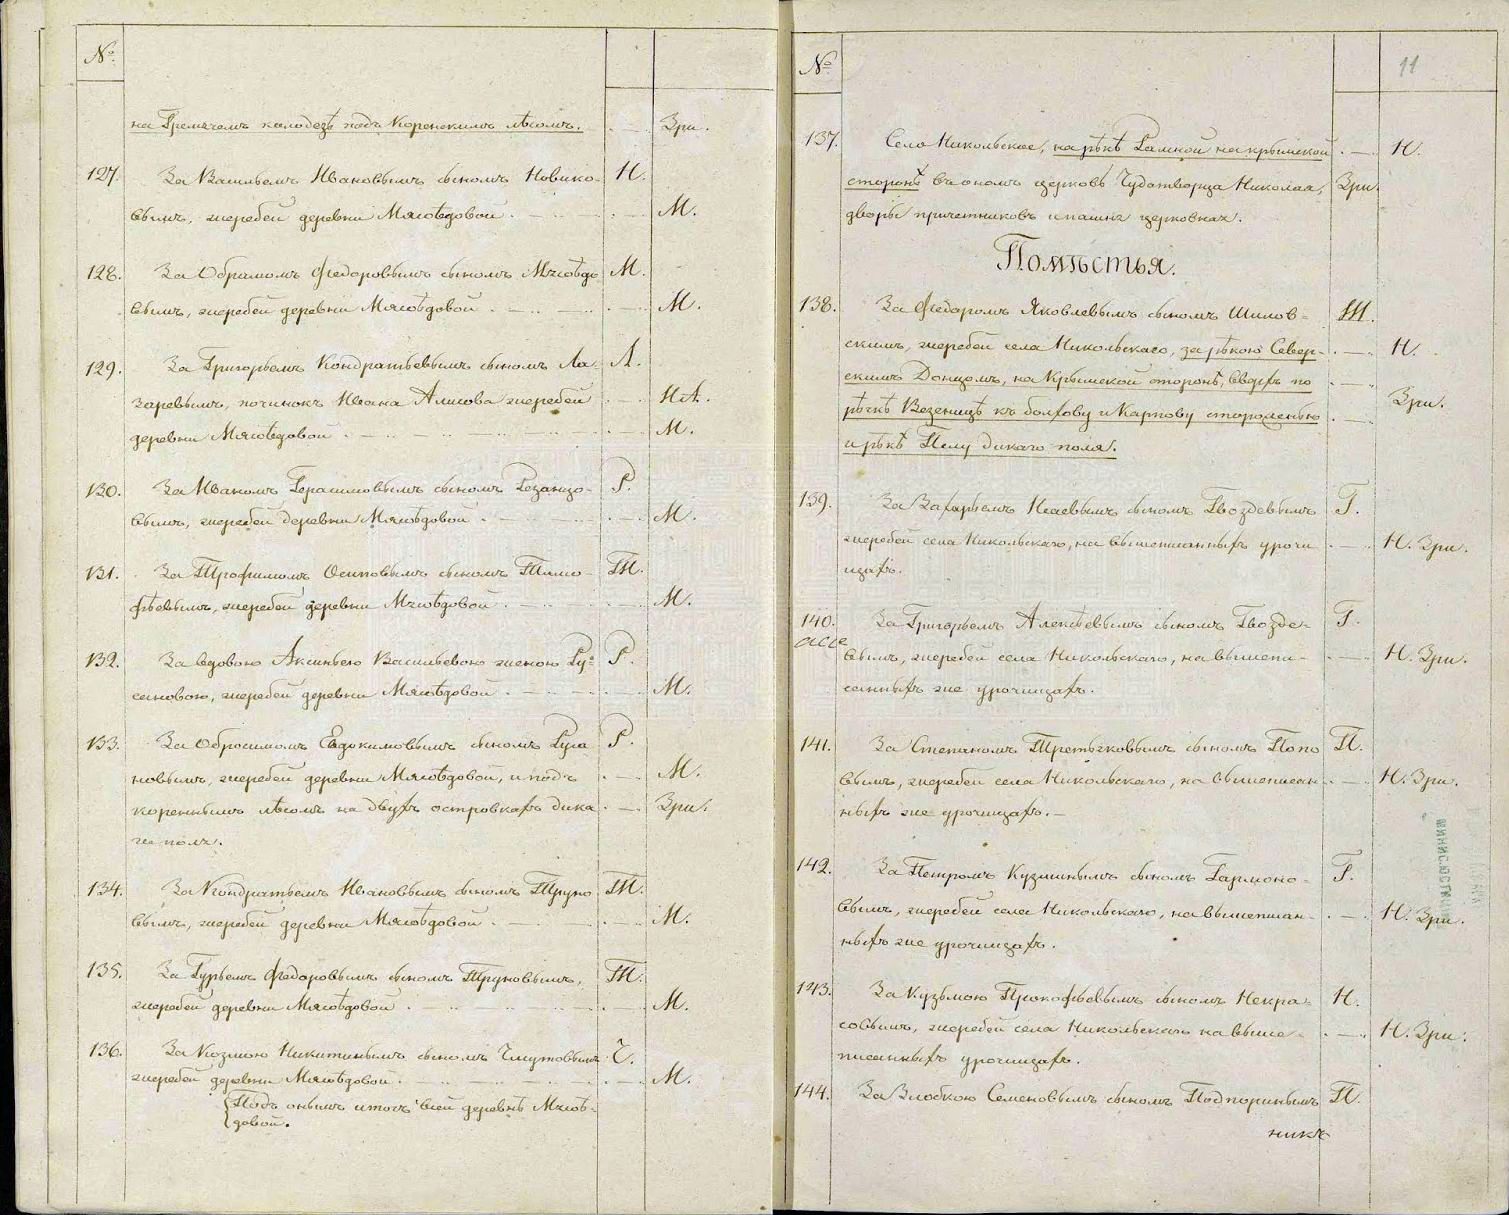 №
на Гремячемъ колодезѣ подъ Коренскимъ лѣсомъ. Зри.
127. За Васильемъ Ивановымъ сыномъ Новико- Н.
вымъ, жеребей деревни Мясоѣдовой. М.
128. За Обрамомъ Федоровымъ сыномъ Мясоѣдо М.
вымъ, жеребей деревни Мясоѣдовой М.
129. За Григорьемъ Кондратьевымъ сыномъ Ла- Л.
заревымъ, починокъ Ивана Алисова жеребей
деревни Мясоѣдовой. М.
130. За Иваномъ Герасимовымъ сыномъ Резанцо- Р.
вымъ, жеребей деревни Мясоѣдовой. М.
131. За Трофимомъ Осиповымъ сыномъ Тимо- Т.
фѣевымъ, жеребей деревни Мясоѣдовой. М.
132. За вдовою Аксиньею Васильевою женою Ру- Р.
сановою, жеребей деревни Мясоѣдовой. М.
133. За Обросимомъ Евдокимовымъ сыномъ Руса Р.
новымъ, жеребей деревни Мясоѣдовой, и подъ М.
кореннымъ лѣсомъ на двухъ островкахъ дика Зри.
же поля.
134. За Кондратьемъ Ивановымъ сыномъ Труно Т.
вымъ, жеребей деревни Мясоѣдовой. М.
135. За Гурьемъ Федоровымъ сыномъ Труновымъ, Т.
жеребей деревни Мясоѣдовой. М.
136. За Козмою Никитинымъ сыномъ Чмутовымъ Ч.
жеребей деревни Мясоѣдовой. М.
Подъ онымъ итогъ всей деревнѣ Мясоѣ-
довой.
№ 11
137. Село Никольское, на рѣкѣ Размной на крымской Н.
сторонѣ въ ономъ церковь Чудотворца Николая, Зри.
дворы причетниковъ и пашня церковная.
Помѣстья.
138. За Федоромъ Яковлевымъ сыномъ Шилов- Ш.
скимъ, жеребей села Никольскаго, за рѣкою Север- Н.
скимъ Донцомъ, на Крымской сторонѣ, вверхъ по
рѣчкѣ Везеницѣ къ болхову и Карпову сторожевью Зри.
и рѣкѣ Пслу дикаго поля.
139. За Захарьемъ Исаевымъ сыномъ Гвоздевымъ Г.
жеребей села Никольскаго, на вышеписанныхъ урочи Н. Зри.
щахъ.
140. За Григорьемъ Алексѣевымъ сыномъ Гвозде- Г.
вымъ, жеребей села Никольскаго, на вышепи- Н. Зри.
санныхъ же урочищахъ.
141. За Степаномъ Третьяковымъ сыномъ Попо П.
вымъ, жеребей села Никольскаго, на вышеписан- Н. Зри.
ныхъ же урочищахъ.
142. За Петромъ Кузминымъ сыномъ Гармоно- Г.
вымъ, жеребей села Никольскаго, на вышеписан- Н. Зри.
ныхъ же урочищахъ.
143. За Кузьмою Прокофьевымъ сыномъ Некра- Н.
совымъ, жеребей села Никольскаго на выше- Н. Зри.
писанныхъ урочищахъ.
144. За Злобкою Семеновымъ сыномъ Подпоринымъ П.